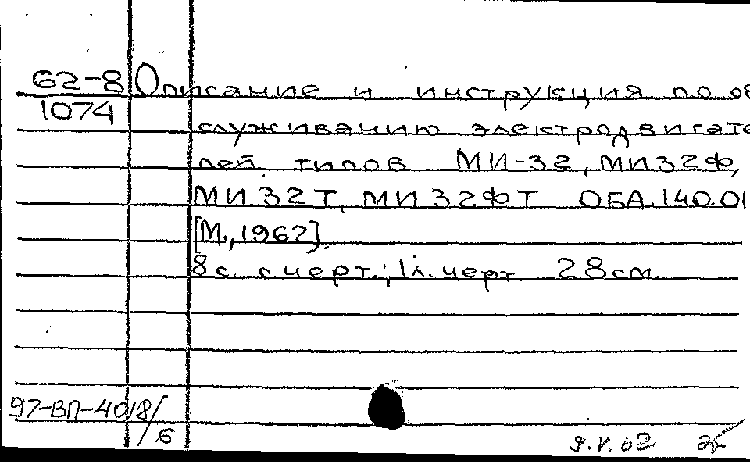 62-8 Описание и инструкция по об
1074
служиванию электродвигате
лей типов МИ-32, МИ32Ф,
МИ32Т, МИ32ФТ ОБА.140.01
[М., 1962].
8 с. с черт.; 1 л. черт 28 см
97-ВП-4018/
/6
9.V.62